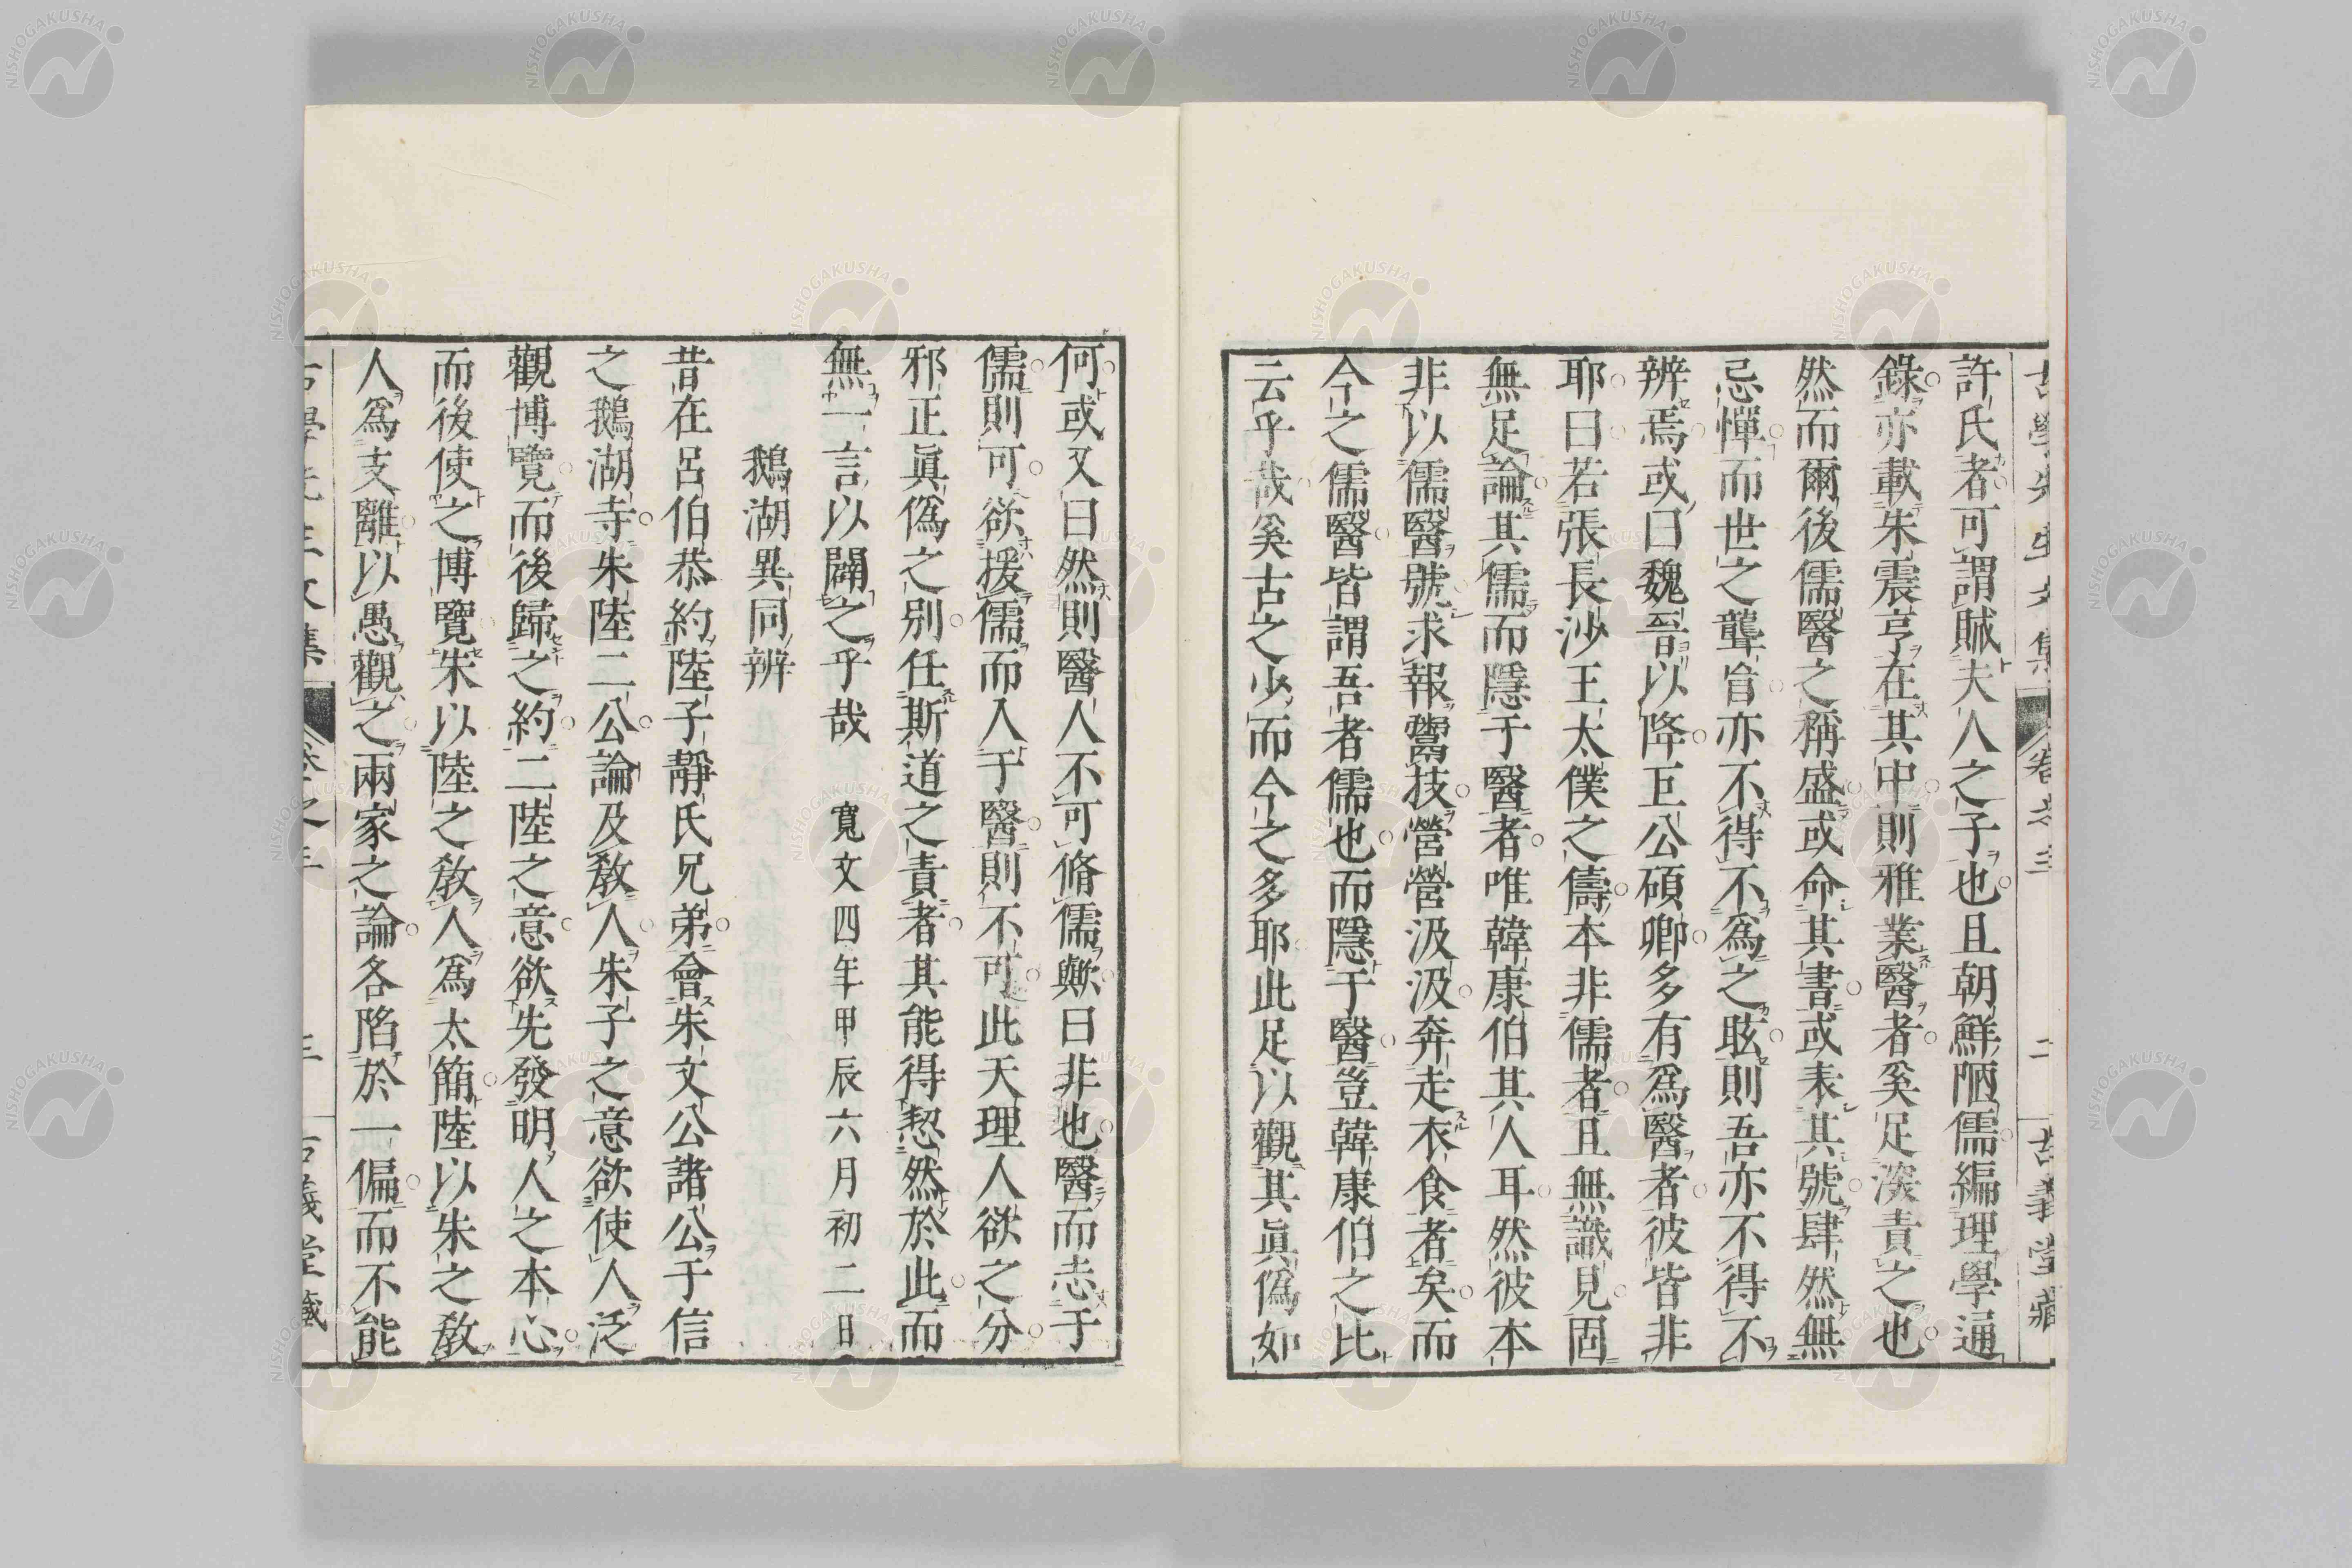 古學先生文集 卷之三 二 古義堂藏
許氏者可謂賊夫人之子也且朝鮮陋儒編理學通
錄亦載朱震亨在其中則雅業醫者奚足深責之也
然而爾後儒醫之稱盛或命其書或表其號肆然無
忌憚而世之聾盲亦不得不爲之眩則吾亦不得不
辨焉或曰魏晉以降巨公碩卿多有爲醫者彼皆非
耶曰若張長沙王太僕之儔本非儒者且無識見固
無足論其儒而隱于醫者唯韓康伯其人耳然彼本
非以儒醫號求報鬻技營營汲汲奔走衣食者矣而
今之儒醫皆謂吾者儒也而隱于醫豈韓康伯之比
云乎哉奚古之少而今之多耶此足以觀其眞僞如
何或又曰然則醫人不可脩儒歟曰非也醫而志于
儒則可欲援儒而入于醫則不可此天理人欲之分
邪正眞僞之別任斯道之責者其能得恝然於此而
無一言以闢之乎哉 寬文四年甲辰六月初二日
鵝湖異同辨
昔在呂伯恭約陸子靜氏兄弟會朱文公諸公于信
之鵝湖寺朱陸二公論及敎人朱子之意欲使人泛
觀博覽而後歸之約二陸之意欲先發明人之本心
而後使之博覽朱以陸之敎人爲太簡陸以朱之敎
人爲支離以愚觀之兩家之論各陷於一偏而不能
古學先生文集 卷之三 三 古義堂藏